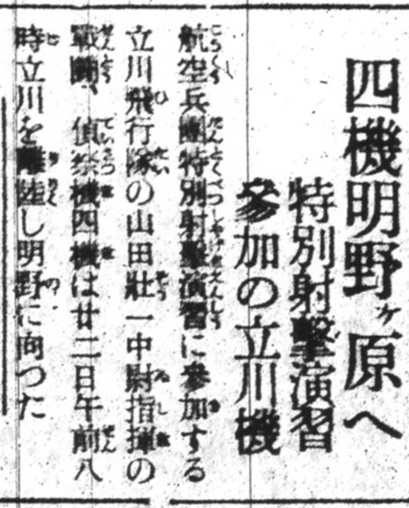 四機明野ヶ原へ
特別射撃演習
參加の立川機
航空兵團特別射撃演習に參加する
立川飛行隊の山田壯一中尉指揮の
戰鬪、偵察機四機は廿二日午前八
時立川を離陸し明野に向つた